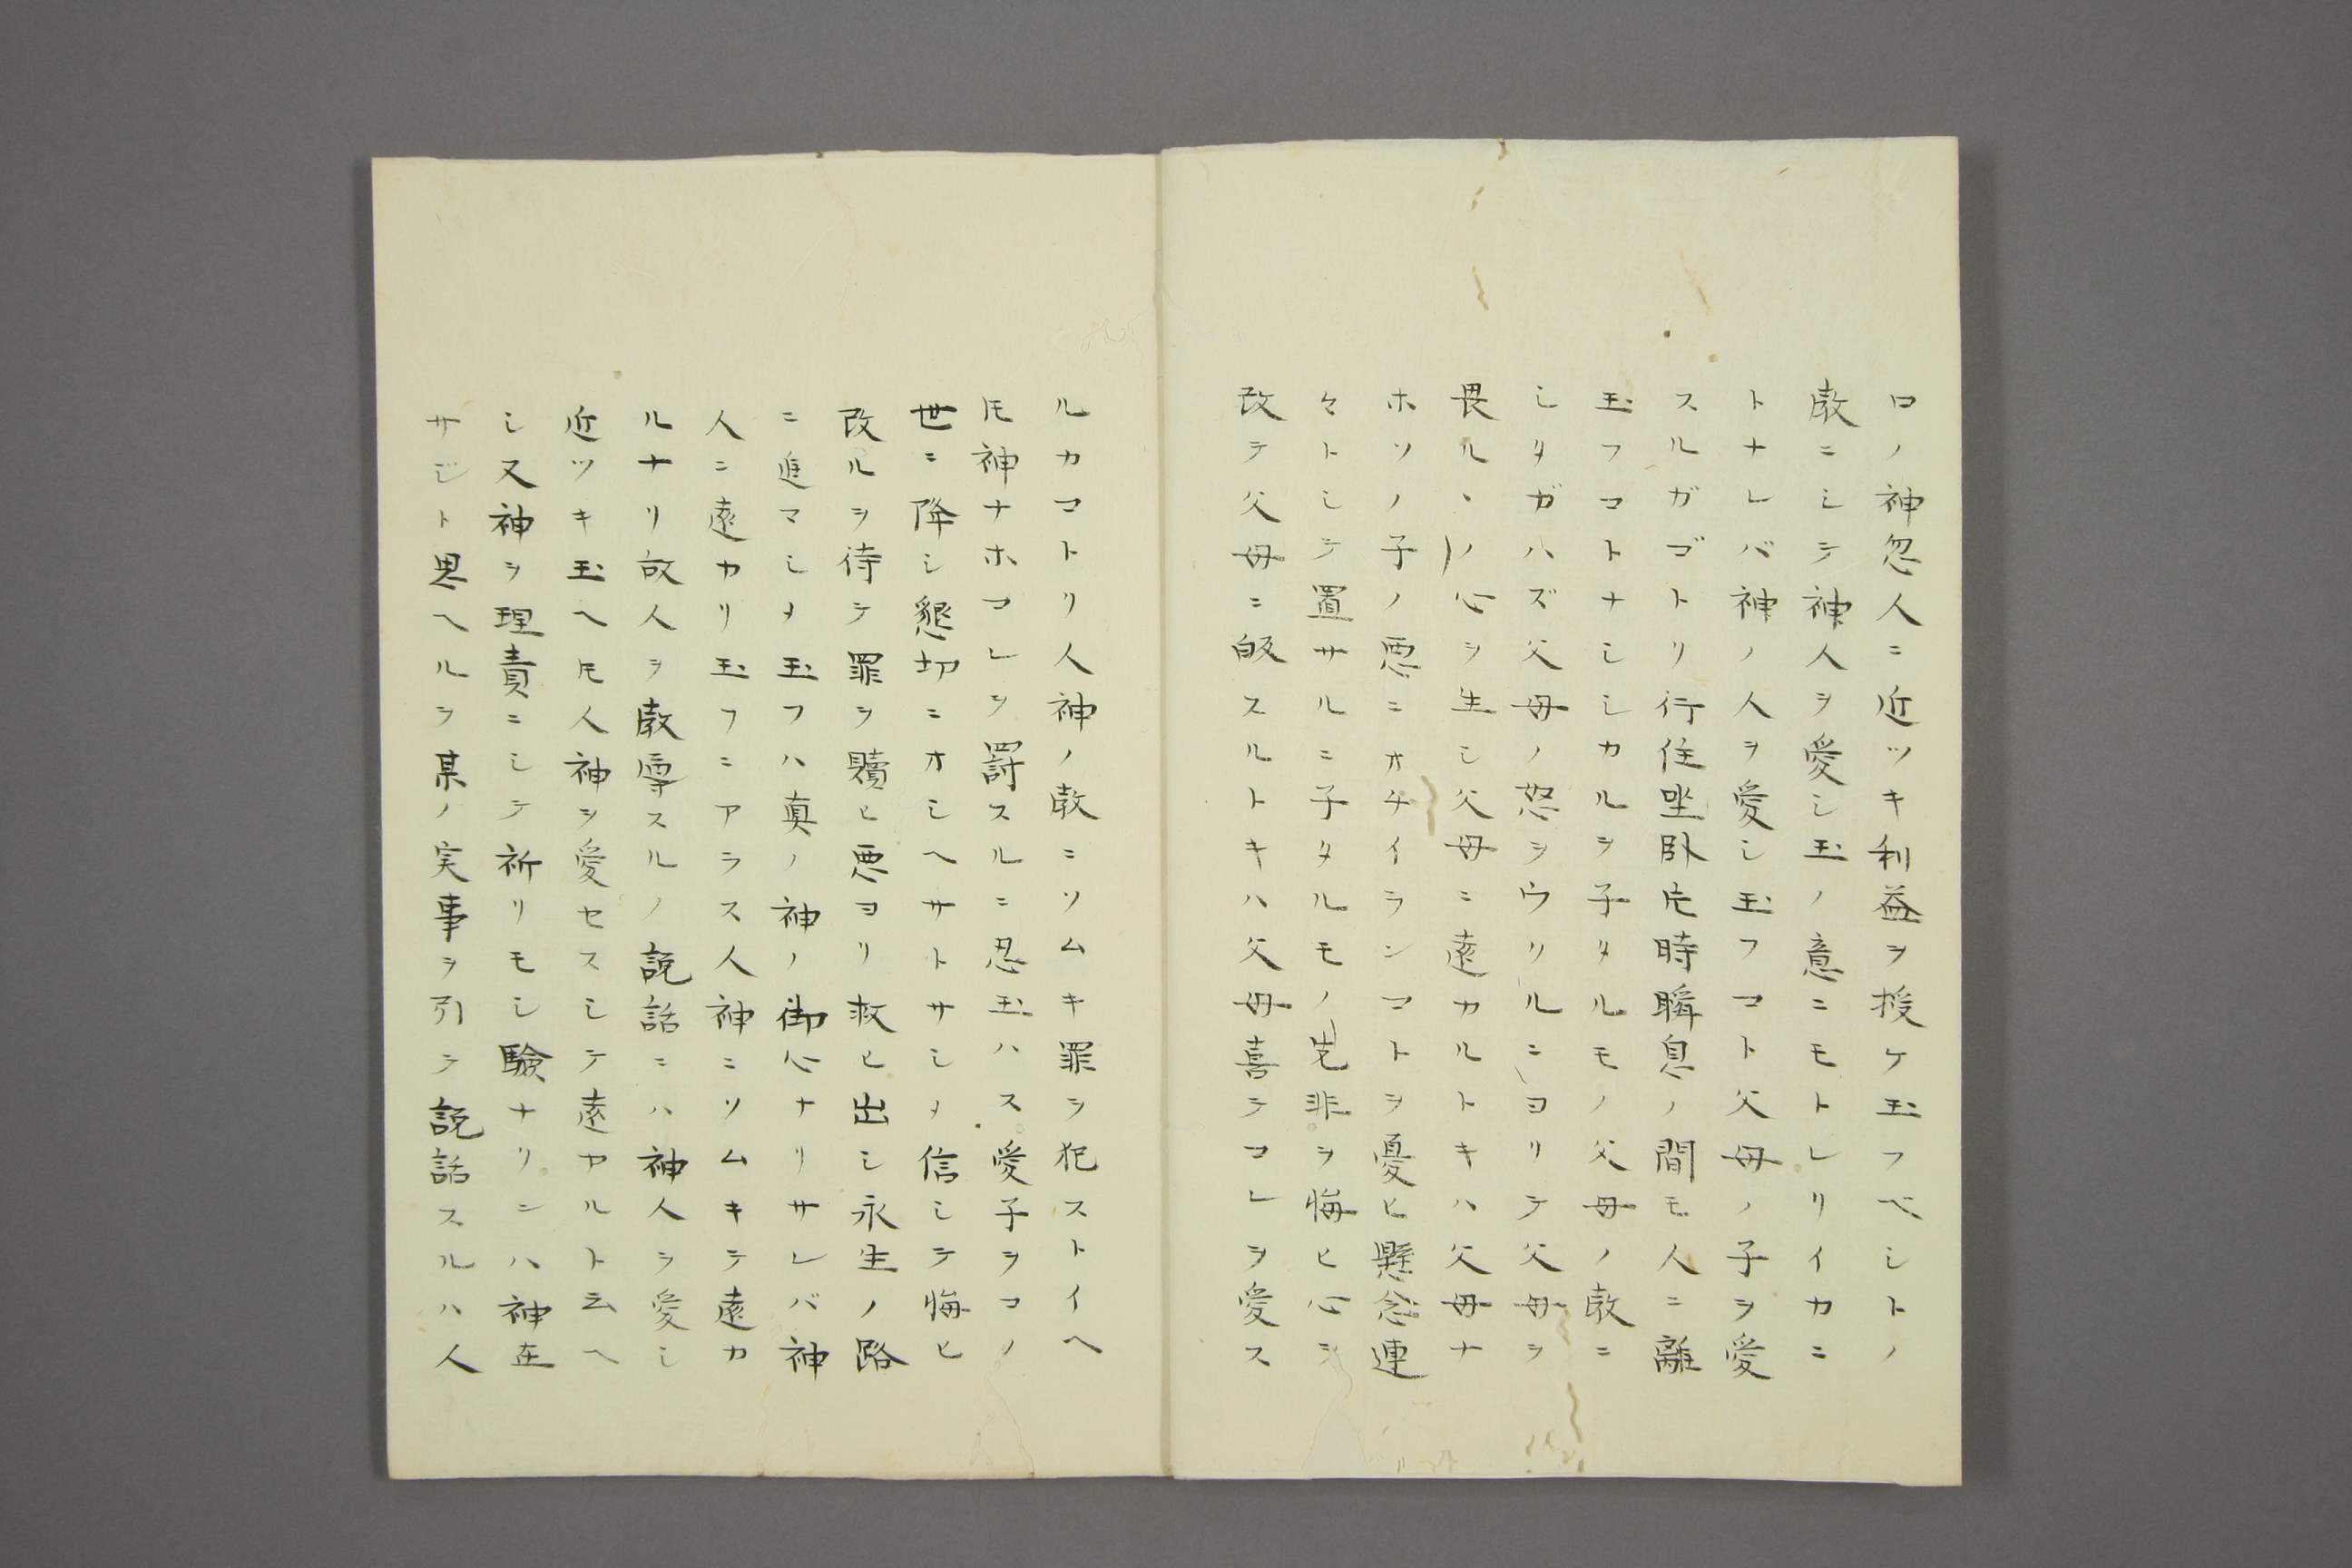 ロノ神忽人ニ近ツキ利益ヲ授ケ玉フベシトノ
教ニシテ神人ヲ愛シ玉ノ意ニモトレリイカニ
トナレバ神ノ人ヲ愛シ玉フコト父母ノ子ヲ愛
スルガゴトリ行住坐臥片時瞬息ノ間モ人ニ離
玉フコトナシシカルヲ子タルモノ父母ノ教ニ
シタガハズ父母ノ怒ヲウリルニヨリテ父母ヲ
畏ルヽノ心ヲ生シ父母ニ遠カルトキハ父母ナ
ホソノ子ノ悪ニオチイランコトヲ憂ヒ懸念連
々トシテ置サルニ子タルモノ先非ヲ悔ヒ心ヲ
改テ父母ニ皈スルトキハ父母喜テコレヲ愛ス
ルカコトリ人神ノ教ニソムキ罪ヲ犯ストイヘ
𪜈神ナホコレヲ罰スルニ忍玉ハス愛子ヲコノ
世ニ降シ懇切ニオシヘサトサシメ信シテ悔ヒ
改ルヲ待テ罪ヲ贖ヒ悪ヨリ救ヒ出シ永生ノ路
ニ進マシメ玉フハ真ノ神ノ御心ナリサレバ神
人ニ遠カリ玉フニアラス人神ニソムキテ遠カ
ルナリ故人ヲ教導スルノ説話ニハ神人ヲ愛シ
近ツキ玉ヘ𪜈人神ヲ愛セスシテ遠カルト云ヘ
シ又神ヲ理責ニシテ祈リモシ驗ナリンハ神在
サジト思ヘルヲ某ノ実事ヲ引テ説話スルハ人